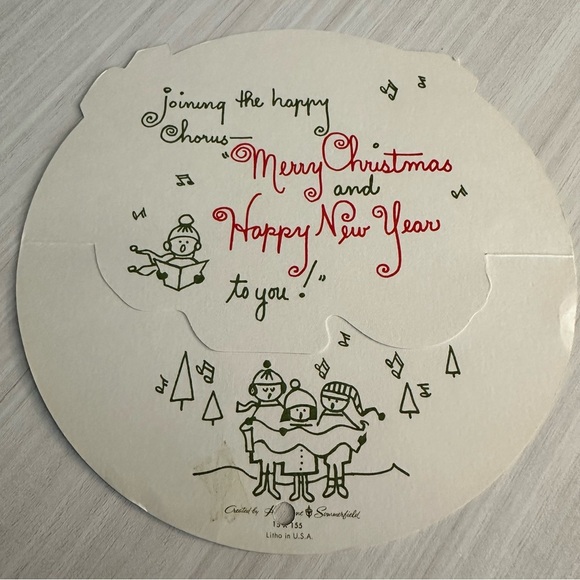 Joining the happy
Chorus—
"Merry Christmas
and
Happy New Year
to you!"
Created by Sommerfield
155
Litho in U.S.A.